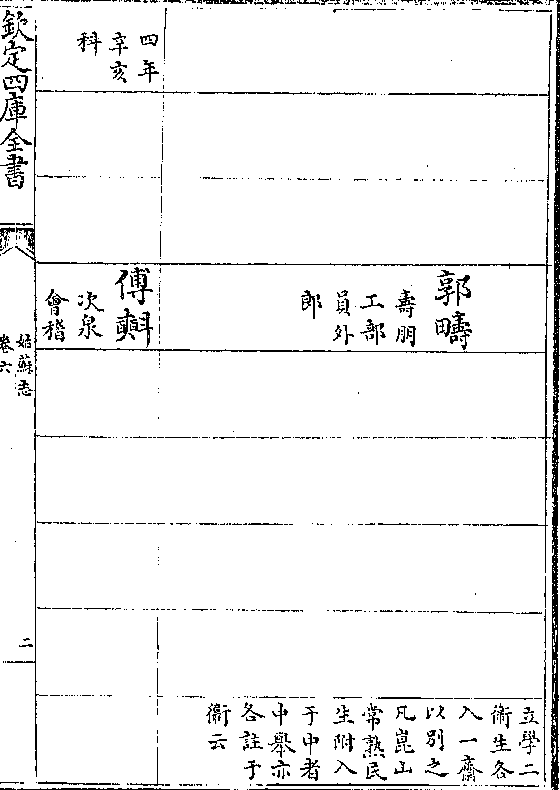 郭疇
壽朋
工部
員外
郎
立學二
衛生各
入一齋
以别之
凡崑山
常熟民
生附入
于中者
中舉亦
各註于
衛云
四年
辛亥
科
傅
次泉
會稽
欽定四庫全書
姑蘇志
卷六
二